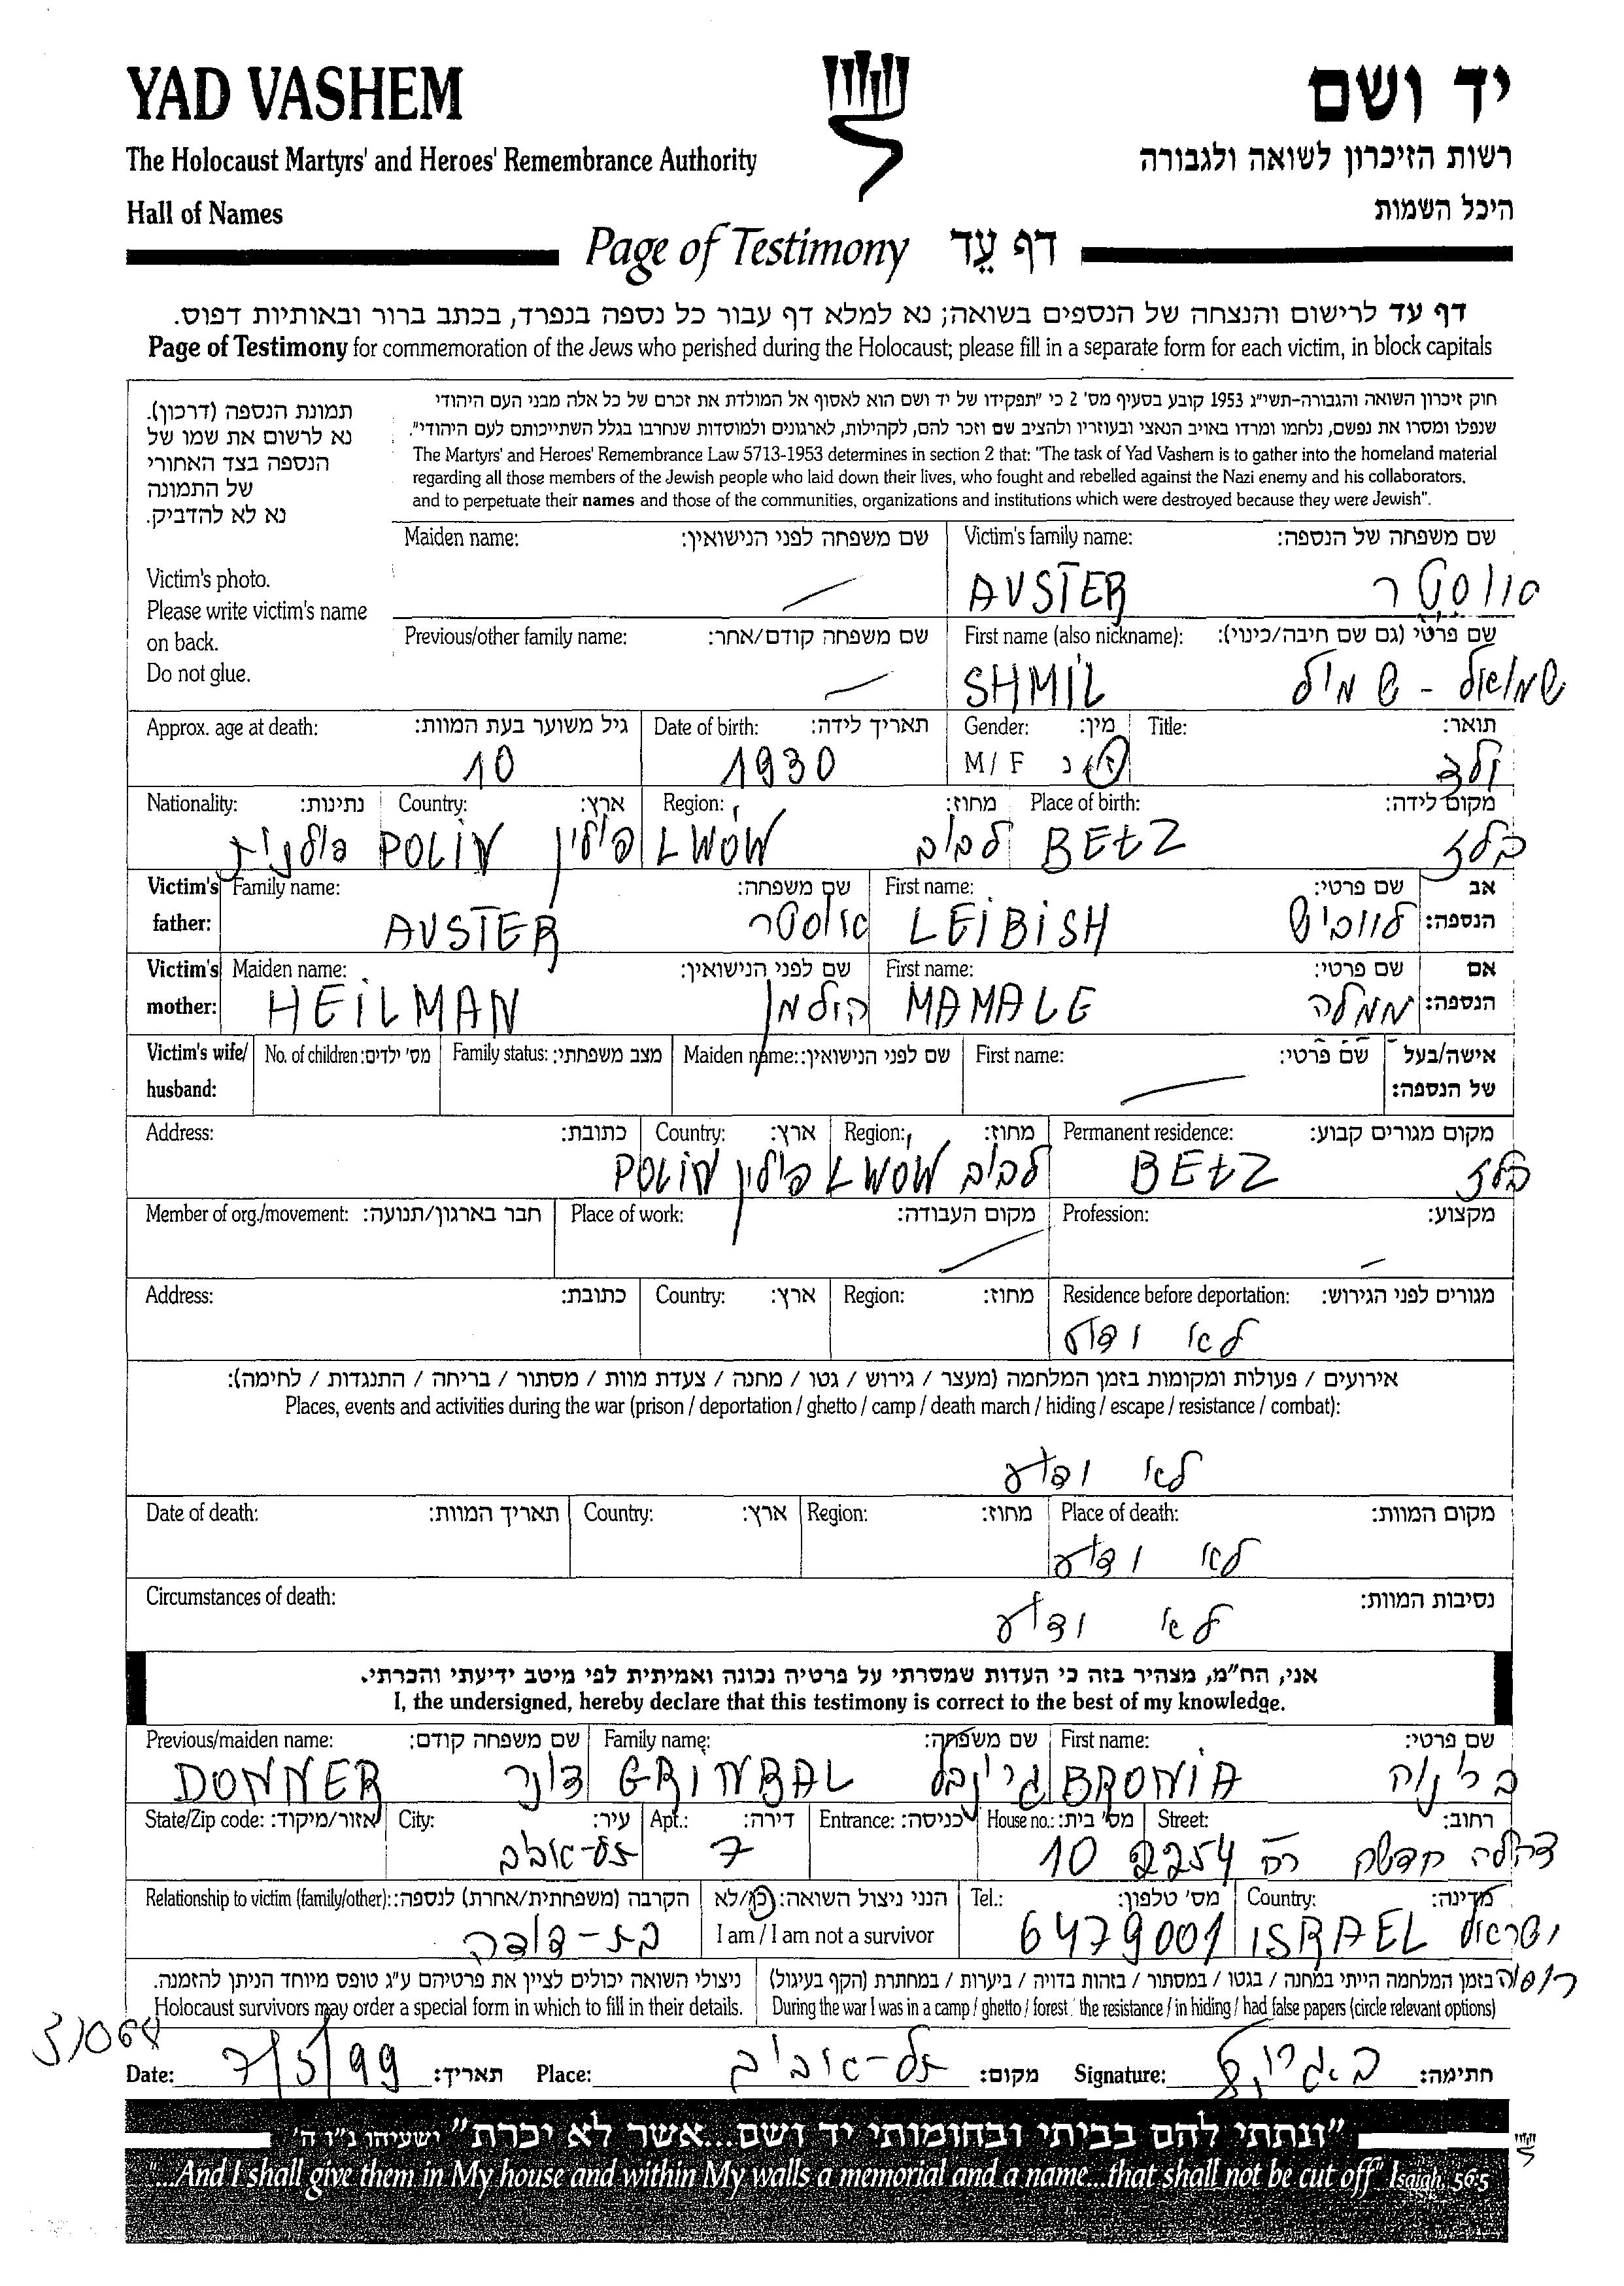 YAD VASHEM
יד ושם
The Holocaust Martyrs' and Heroes' Remembrance Authority
רשות הזיכרון לשואה ולגבורה
Hall of Names
היכל השמות
Page of Testimony דף עֵד
דף עד לרישום והנצחה של הנספים בשואה; נא למלא דף עבור כל נספה בנפרד, בכתב ברור ובאותיות דפוס.
Page of Testimony for commemoration of the Jews who perished during the Holocaust; please fill in a separate form for each victim, in block capitals
תמונת הנספה (דרכון).
נא לרשום את שמו של
הנספה בצד האחורי
של התמונה
נא לא להדביק.
Victim's photo.
Please write victim's name
on back.
Do not glue.
חוק זיכרון השואה והגבורה-תשי"ג 1953 קובע בסעיף מס' 2 כי "תפקידו של יד ושם הוא לאסוף אל המולדת את זכרם של כל אלה מבני העם היהודי
שנפלו ומסרו את נפשם, נלחמו ומרדו באויב הנאצי ובעוזריו ולהציב שם וזכר להם, לקהילות, לארגונים ולמוסדות שנחרבו בגלל השתייכותם לעם היהודי".
The Martyrs' and Heroes' Remembrance Law 5713-1953 determines in section 2 that: "The task of Yad Vashem is to gather into the homeland material
regarding all those members of the Jewish people who laid down their lives, who fought and rebelled against the Nazi enemy and his collaborators,
and to perpetuate their names and those of the communities, organizations and institutions which were destroyed because they were Jewish".
Maiden name: שם משפחה לפני הנישואין: Victim's family name: שם משפחה של הנספה:
AUSTER אוסטר
Previous/other family name: שם משפחה קודם/אחר: First name (also nickname): שם פרטי (גם שם חיבה/כינוי):
SHMIL שמואל - שמיל
Approx. age at death: גיל משוער בעת המוות: Date of birth: תאריך לידה: Gender: מין: Title: תואר:
10 1930 M / F ז/נ ילד
Nationality: נתינות: Country: ארץ: Region: מחוז: Place of birth: מקום לידה:
פולנית POLIN פולין LWÓW לבוב BEŁZ בלז
Victim's father: Family name: שם משפחה: First name: שם פרטי: אב הנספה:
AUSTER אוסטר LEIBISH לייביש
Victim's mother: Maiden name: שם לפני הנישואין: First name: שם פרטי: אם הנספה:
HEILMAN הילמן MAMALE ממלה
Victim's wife/ husband: No. of children: מס' ילדים: Family status: מצב משפחתי: Maiden name: שם לפני הנישואין: First name: שם פרטי: אישה/בעל של הנספה:
Address: כתובת: Country: ארץ: Region: מחוז: Permanent residence: מקום מגורים קבוע:
POLIN פולין LWÓW לבוב BEŁZ בלז
Member of org./movement: חבר בארגון/תנועה: Place of work: מקום העבודה: Profession: מקצוע:
Address: כתובת: Country: ארץ: Region: מחוז: Residence before deportation: מגורים לפני הגירוש:
לא ידוע
אירועים / פעולות ומקומות בזמן המלחמה (מעצר / גירוש / גטו / מחנה / צעדת מוות / מסתור / בריחה / התנגדות / לחימה):
Places, events and activities during the war (prison / deportation / ghetto / camp / death march / hiding / escape / resistance / combat):
לא ידוע
Date of death: תאריך המוות: Country: ארץ: Region: מחוז: Place of death: מקום המוות:
לא ידוע
Circumstances of death: נסיבות המוות:
לא ידוע
אני, הח"מ, מצהיר בזה כי העדות שמסרתי על פרטיה נכונה ואמיתית לפי מיטב ידיעתי והכרתי.
I, the undersigned, hereby declare that this testimony is correct to the best of my knowledge.
Previous/maiden name: שם משפחה קודם: Family name: שם משפחה: First name: שם פרטי:
DONNER דונר GRINBAL גרינבל BRONIA ברוניה
State/Zip code: אזור/מיקוד: City: עיר: Apt.: דירה: Entrance: כניסה: House no.: מס' בית: Street: רחוב:
תל-אביב 7 10 2254 רח
Relationship to victim (family/other): הקרבה (משפחתית/אחרת) לנספה: הנני ניצול השואה: כן/לא Tel.: מס' טלפון: Country: מדינה:
בת-דודה I am / I am not a survivor 6479001 ISRAEL ישראל
ניצולי השואה יכולים לציין את פרטיהם ע"ג טופס מיוחד הניתן להזמנה. בזמן המלחמה הייתי במחנה / בגטו / במסתור / בזהות בדויה / ביערות / במחתרת (הקף בעיגול) רוסיה
Holocaust survivors may order a special form in which to fill in their details. During the war I was in a camp / ghetto / forest / the resistance / in hiding / had false papers (circle relevant options)
Date: 7/5/99 תאריך: Place: תל-אביב מקום: Signature: חתימה:
"ונתתי להם בביתי ובחומותי יד ושם...אשר לא יכרת" ישעיהו נ"ו ה'
"...And I shall give them in My house and within My walls a memorial and a name...that shall not be cut off" Isaiah 56:5